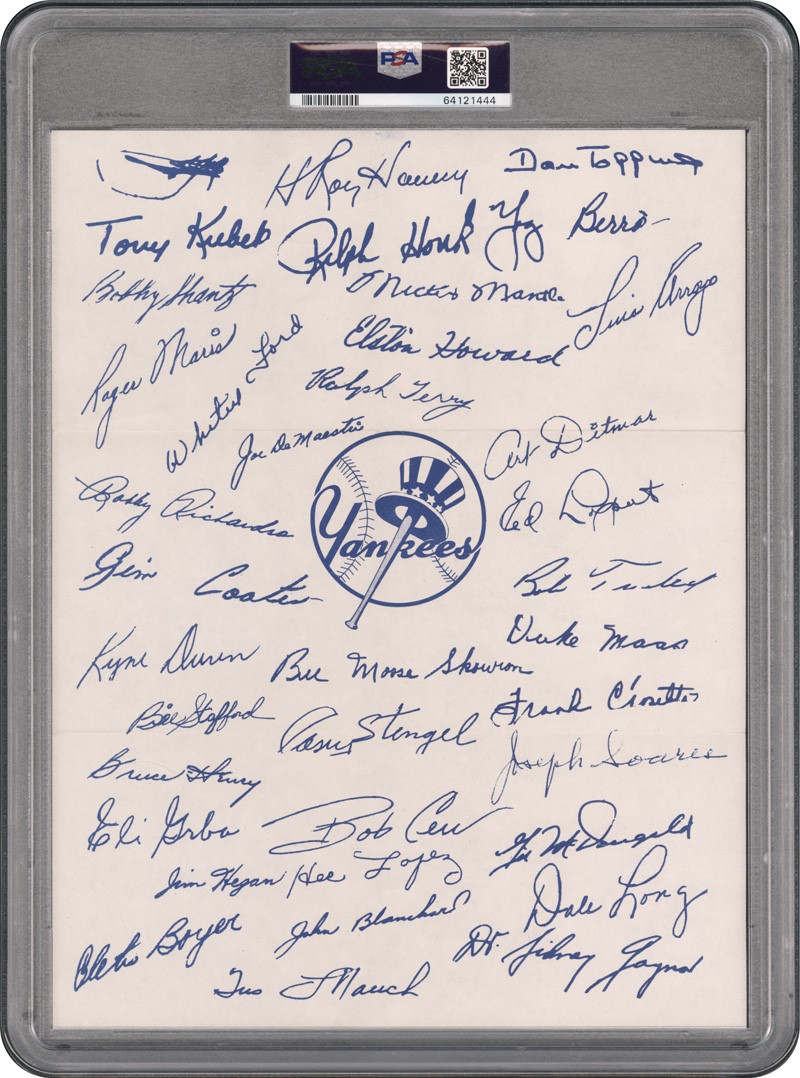 PSA
64121444
H Roy Hamey
Dan Topping
Tony Kubek
Ralph Houk
Yogi Berra
Bobby Shantz
Mickey Mantle
Luis Arroyo
Roger Maris
Whitey Ford
Elston Howard
Ralph Terry
Joe DeMaestri
Art Ditmar
Yankees
Bobby Richardson
Ed Lopat
Jim Coates
Bob Turley
Duke Maas
Ryne Duren
Bill Moose Skowron
Frank Crosetti
Bill Stafford
Casey Stengel
Joseph Soares
Bruce Henry
Eli Grba
Bob Cerv
Gil McDougald
Jim Hegan
Hec Lopez
Dale Long
John Blanchard
Cletis Boyer
Dr. Sidney Gaynor
Gus Mauch